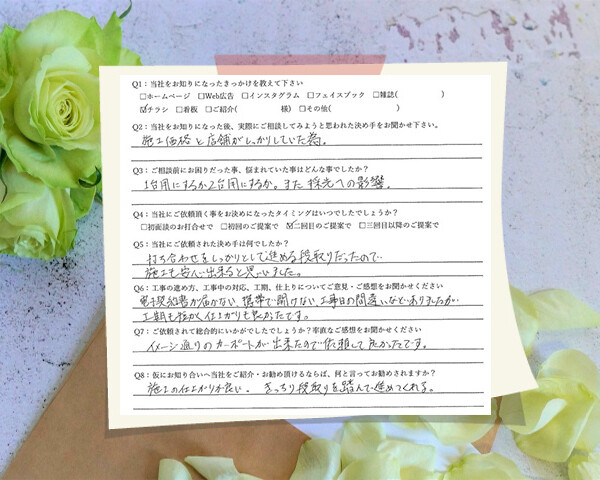 Q1：当社をお知りになったきっかけを教えて下さい
□ホームページ □Web広告 □インスタグラム □フェイスブック □雑誌( )
☑チラシ □看板 □ご紹介( 様) □その他( )
Q2：当社をお知りになった後、実際にご相談してみようと思われた決め手をお聞かせ下さい。
施工価格と店舗がしっかりしていた為。
Q3：ご相談前にお困りだった事、悩まれていた事はどんな事でしたか？
1台用にするか2台用にするか。また採光への影響。
Q4：当社にご依頼頂く事をお決めになったタイミングはいつでしたでしょうか？
□初面談のお打合せで □初回のご提案で ☑二回目のご提案で □三回目以降のご提案で
Q5：当社にご依頼された決め手は何でしたか？
打ち合わせをしっかりとして進める段取りだったので
施工も安心出来ると思いました。
Q6：工事の進め方、工事中の対応、工期、仕上りについてご意見・ご感想をお聞かせください
電子契約書が届かない、携帯で開けない、工事日の間違いなどありましたが
工期も短かく仕上がりも良かったです。
Q7：ご依頼されて総合的にいかがでしたでしょうか？率直なご感想をお聞かせください
イメージ通りのカーポートが出来たので依頼して良かったです。
Q8：仮にお知り合いへ当社をご紹介・お勧め頂けるならば、何と言ってお勧めされますか？
施工の仕上がりが良い。きっちり段取りを踏んで進めてくれる。